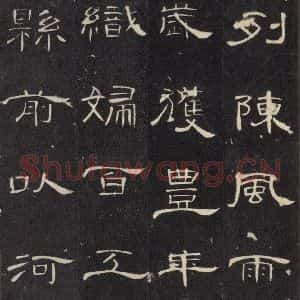 列陳風雨
歲獲豐年
織婦百工
縣前吠河
Shufawang.CN